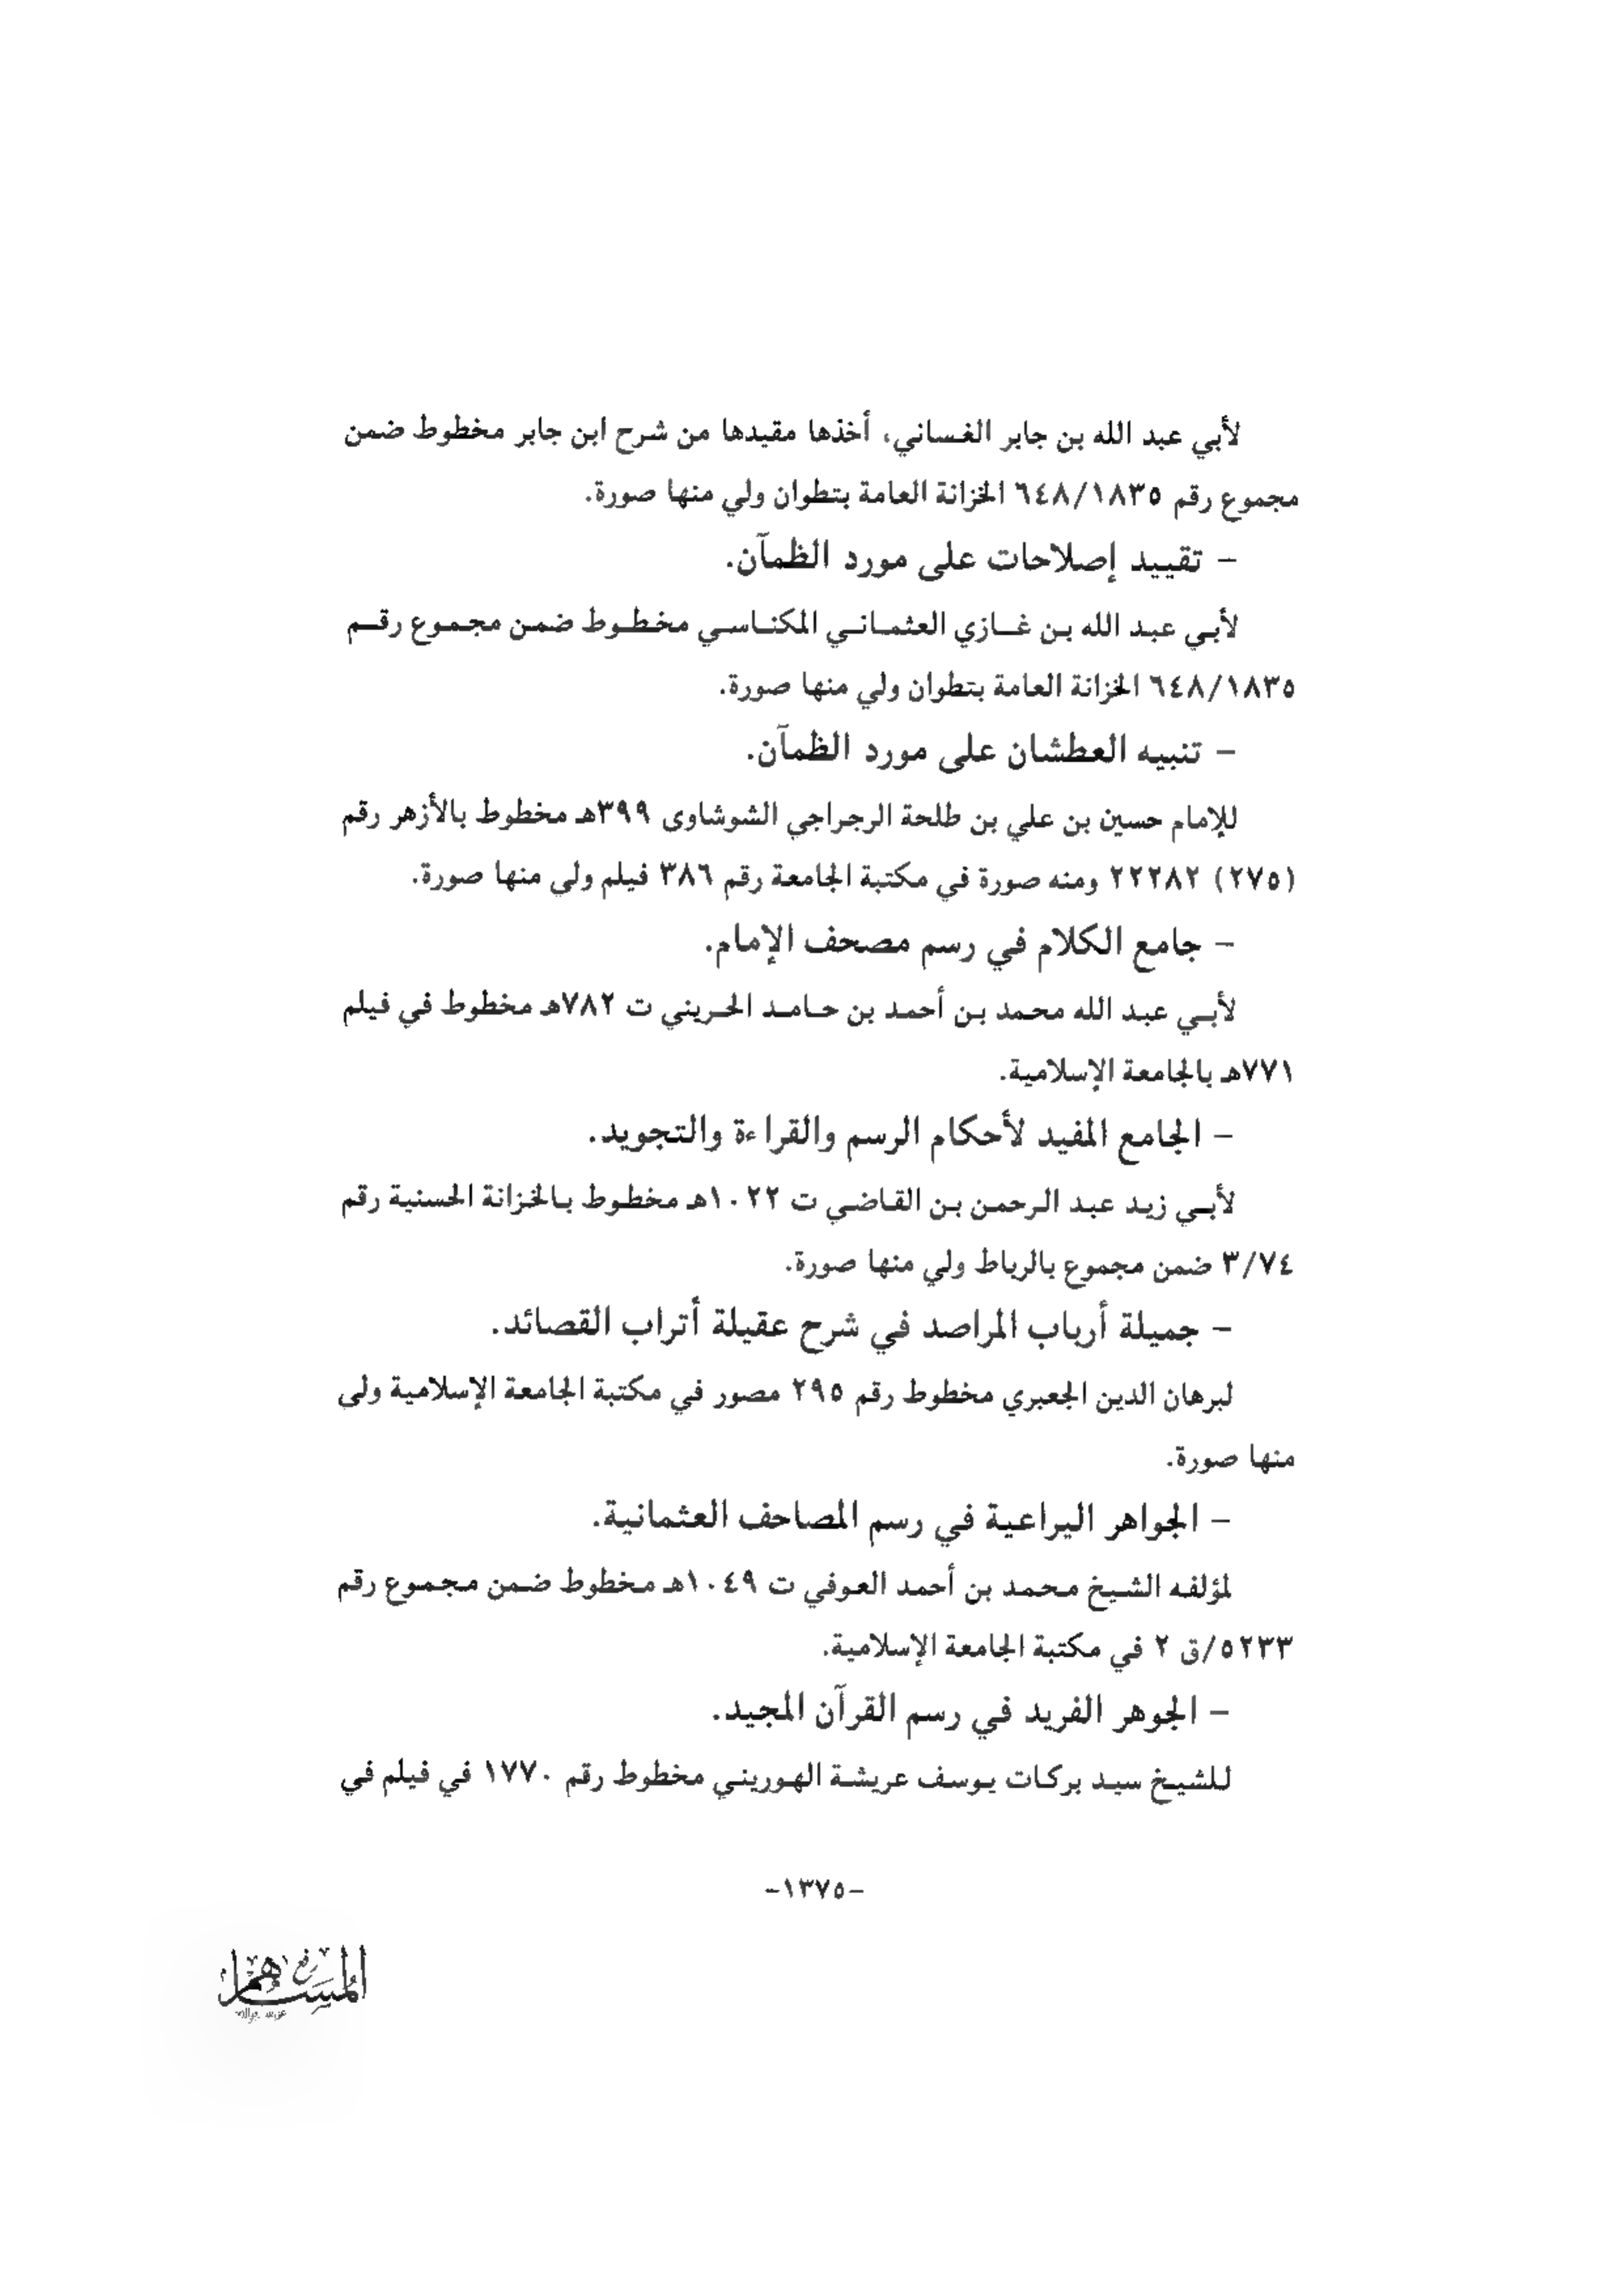 لأبي عبد الله بن جابر الغساني، أخذها مقيدها من شرح ابن جابر مخطوط ضمن
مجموع رقم ٦٤٨/١٨٣٥ الخزانة العامة بتطوان ولي منها صورة.
- تقييد إصلاحات على مورد الظمآن.
لأبي عبد الله بن غازي العثماني المكناسي مخطوط ضمن مجموع رقم
٦٤٨/١٨٣٥ الخزانة العامة بتطوان ولي منها صورة.
- تنبيه العطشان على مورد الظمآن.
للإمام حسين بن علي بن طلحة الرجراجي الشوشاوى ٣٩٩هـ مخطوط بالأزهر رقم
(٢٧٥) ٢٢٢٨٢ ومنه صورة في مكتبة الجامعة رقم ٣٨٦ فيلم ولي منها صورة.
- جامع الكلام في رسم مصحف الإمام.
لأبي عبد الله محمد بن أحمد بن حامد الحريني ت ٧٨٢هـ مخطوط في فيلم
٧٧١هـ بالجامعة الإسلامية.
- الجامع المفيد لأحكام الرسم والقراءة والتجويد.
لأبي زيد عبد الرحمن بن القاضي ت ١٠٢٢هـ مخطوط بالخزانة الحسنية رقم
٣/٧٤ ضمن مجموع بالرباط ولي منها صورة.
- جميلة أرباب المراصد في شرح عقيلة أتراب القصائد.
لبرهان الدين الجعبري مخطوط رقم ٢٩٥ مصور في مكتبة الجامعة الإسلامية ولى
منها صورة.
- الجواهر اليراعية في رسم المصاحف العثمانية.
لمؤلفه الشيخ محمد بن أحمد العوفي ت ١٠٤٩هـ مخطوط ضمن مجموع رقم
٥٢٣٣/ق ٢ في مكتبة الجامعة الإسلامية.
- الجوهر الفريد في رسم القرآن المجيد.
للشيخ سيد بركات يوسف عريشة الهوريني مخطوط رقم ١٧٧٠ في فيلم في
-١٣٧٥-